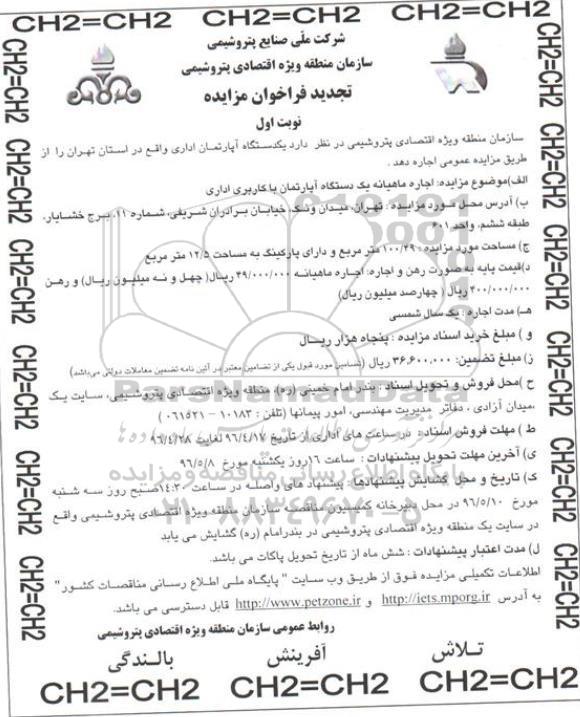 CH2=CH2 CH2=CH2 CH2=CH2
شرکت ملّی صنایع پتروشیمی
سازمان منطقه ویژه اقتصادی پتروشیمی
تجدید فراخوان مزایده
نوبت اول
سازمان منطقه ویژه اقتصادی پتروشیمی در نظر دارد یکدستگاه آپارتمان اداری واقع در استان تهران را از
طریق مزایده عمومی اجاره دهد .
الف)موضوع مزایده: اجاره ماهیانه یک دستگاه آپارتمان با کاربری اداری
ب) آدرس محل مورد مزایده : تهران، میدان ونک، خیابان برادران شریفی، شماره ۱۱، برج خشایار،
طبقه ششم، واحد ۶۰۱
ج) مساحت مورد مزایده : ۱۰۰/۴۹ متر مربع و دارای پارکینگ به مساحت ۱۲/۵ متر مربع
د)قیمت پایه به صورت رهن و اجاره: اجاره ماهیانه ۴۹/۰۰۰/۰۰۰ ریال( چهل و نه میلیون ریال) و رهن
۴۰۰/۰۰۰/۰۰۰ ریال ( چهارصد میلیون ریال)
هـ) مدت اجاره : یک سال شمسی
و ) مبلغ خرید اسناد مزایده : پنجاه هزار ریال
ز) مبلغ تضمین: ۳۶,۶۰۰,۰۰۰ ریال (تضامین مورد قبول یکی از تضامین معتبر در آئین نامه تضمین معاملات دولتی می‌باشد)
ح )محل فروش و تحویل اسناد : بندر امام خمینی (ره)، منطقه ویژه اقتصادی پتروشیمی، سایت یک
،میدان آزادی ، دفاتر مدیریت مهندسی، امور پیمانها (تلفن : ۱۰۱۸۳ - ۰۶۱۵۲۱ )
ط ) مهلت فروش اسناد : در ساعت های اداری از تاریخ ۹۶/۴/۱۷ لغایت ۹۶/۴/۲۸
ی) آخرین مهلت تحویل پیشنهادات : ساعت ۱۶روز یکشنبه مورخ ۹۶/۵/۸
ک) تاریخ و محل گشایش پیشنهادها: پیشنهاد های واصله در ساعت ۱۴:۳۰صبح روز سه شنبه
مورخ ۹۶/۵/۱۰ در محل دبیرخانه کمیسیون مناقصه سازمان منطقه ویژه اقتصادی پتروشیمی واقع
در سایت یک منطقه ویژه اقتصادی پتروشیمی در بندرامام (ره) گشایش می یابد
ل) مدت اعتبار پیشنهادات : شش ماه از تاریخ تحویل پاکات می باشد.
اطلاعات تکمیلی مزایده فوق از طریق وب سایت " پایگاه ملی اطلاع رسانی مناقصات کشور"
به آدرس http://iets.mporg.ir و http://www.petzone.ir قابل دسترسی می باشد.
روابط عمومی سازمان منطقه ویژه اقتصادی پتروشیمی
تلاش آفرینش بالندگی
CH2=CH2 CH2=CH2 CH2=CH2
CH2=CH2 CH2=CH2 CH2=CH2 CH2=CH2 CH2=CH2 CH2=CH2
CH2=CH2 CH2=CH2 CH2=CH2 CH2=CH2 CH2=CH2 CH2=CH2
ParsNamadData
پایگاه اطلاع رسانی مناقصه و مزایده
۰۲۱-۸۸۳۴۹۶۷۰-۵